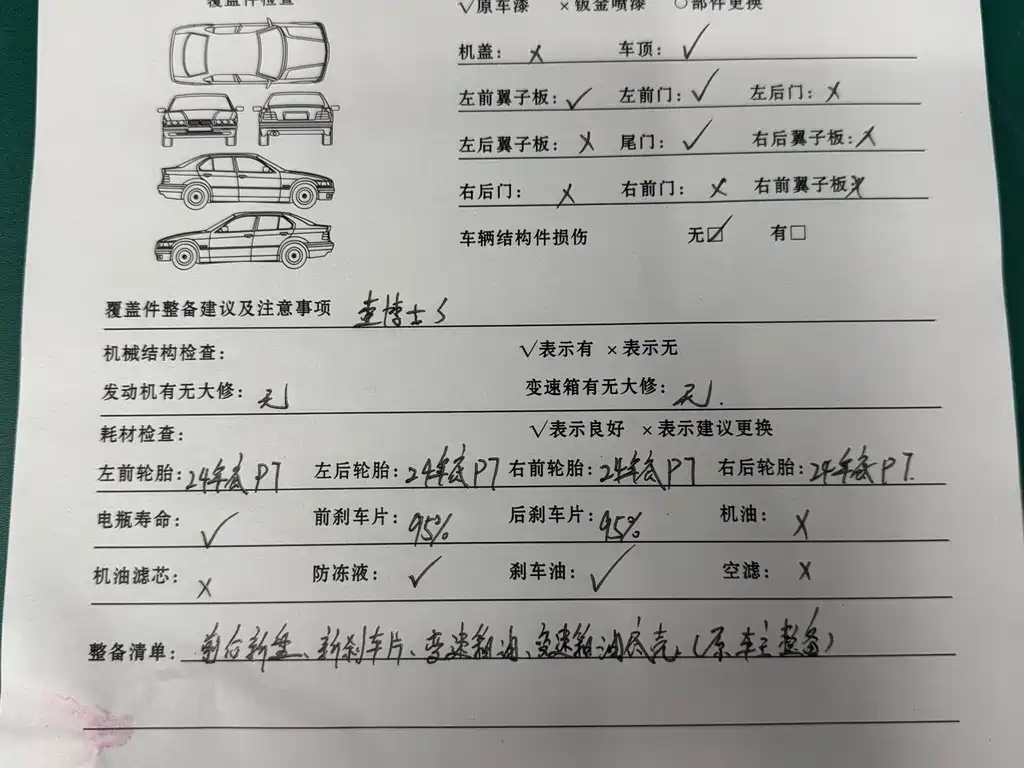 覆盖件检查
√原车漆 ×钣金喷漆 ○部件更换
机盖：× 车顶：√
左前翼子板：√ 左前门：√ 左后门：×
左后翼子板：× 尾门：√ 右后翼子板：×
右后门：× 右前门：× 右前翼子板：×
车辆结构件损伤 无☑ 有□
覆盖件整备建议及注意事项 查博士S
机械结构检查： √表示有 ×表示无
发动机有无大修：无 变速箱有无大修：无.
耗材检查： √表示良好 ×表示建议更换
左前轮胎：24年底P7 左后轮胎：24年底P7 右前轮胎：24年底P7 右后轮胎：24年底P7.
电瓶寿命：√ 前刹车片：95% 后刹车片：95% 机油：×
机油滤芯：× 防冻液：√ 刹车油：√ 空滤：×
整备清单：前后新盘、新刹车片、变速箱油、变速箱油底壳.（原车主整备）